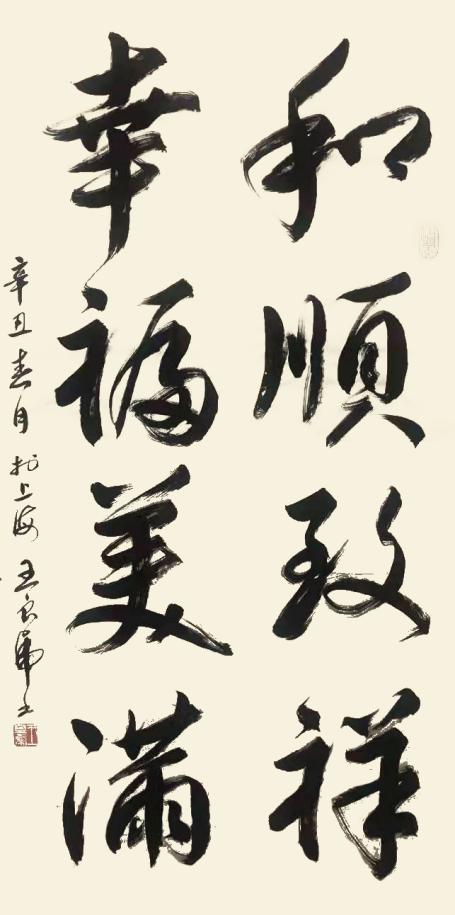 和順致祥
幸福美滿
辛丑春月於上海王良虎書